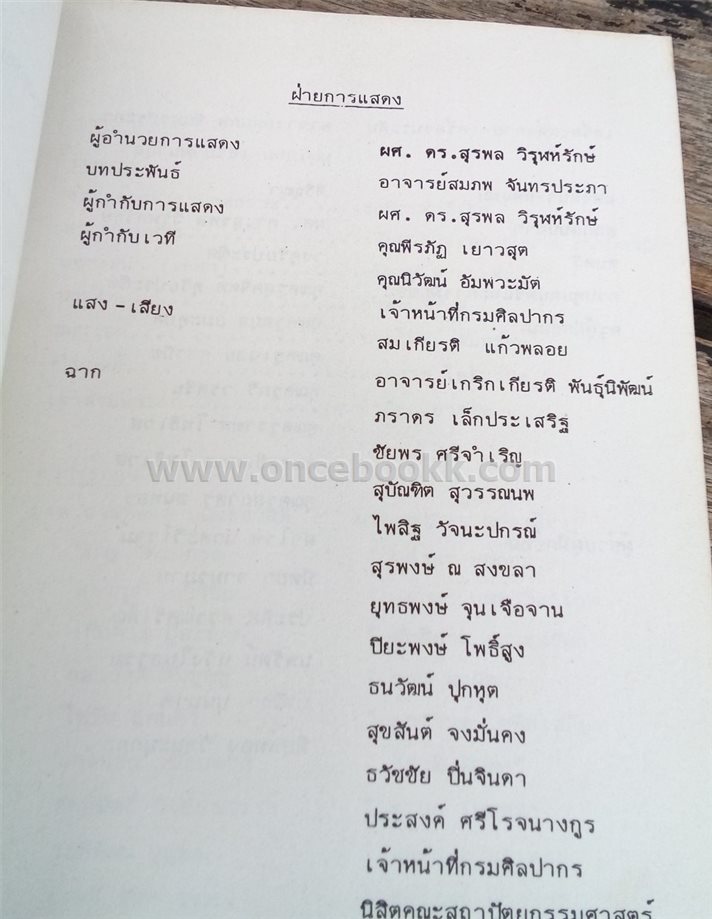 ฝ่ายการแสดง
ผู้อำนวยการแสดง ผศ. ดร.สุรพล วิรุฬห์รักษ์
บทประพันธ์ อาจารย์สมภพ จันทรประภา
ผู้กำกับการแสดง ผศ. ดร.สุรพล วิรุฬห์รักษ์
ผู้กำกับเวที คุณพีรภัฏ เยาวสุต
คุณนิวัฒน์ อัมพวะมัต
แสง - เสียง เจ้าหน้าที่กรมศิลปากร
สมเกียรติ แก้วพลอย
ฉาก อาจารย์เกริกเกียรติ พันธุ์นิพัฒน์
ภราดร เล็กประเสริฐ
ชัยพร ศรีจำเริญ
www.oncebookk.com
สุบัณฑิต สุวรรณนพ
ไพสิฐ วัจนะปกรณ์
สุรพงษ์ ณ สงขลา
ยุทธพงษ์ จุนเจือจาน
ปิยะพงษ์ โพธิ์สูง
ธนวัฒน์ ปุกหุต
สุขสันต์ จงมั่นคง
ธวัชชัย ปิ่นจินดา
ประสงค์ ศรีโรจนางกูร
เจ้าหน้าที่กรมศิลปากร
นิสิตคณะสถาปัตยกรรมศาสตร์